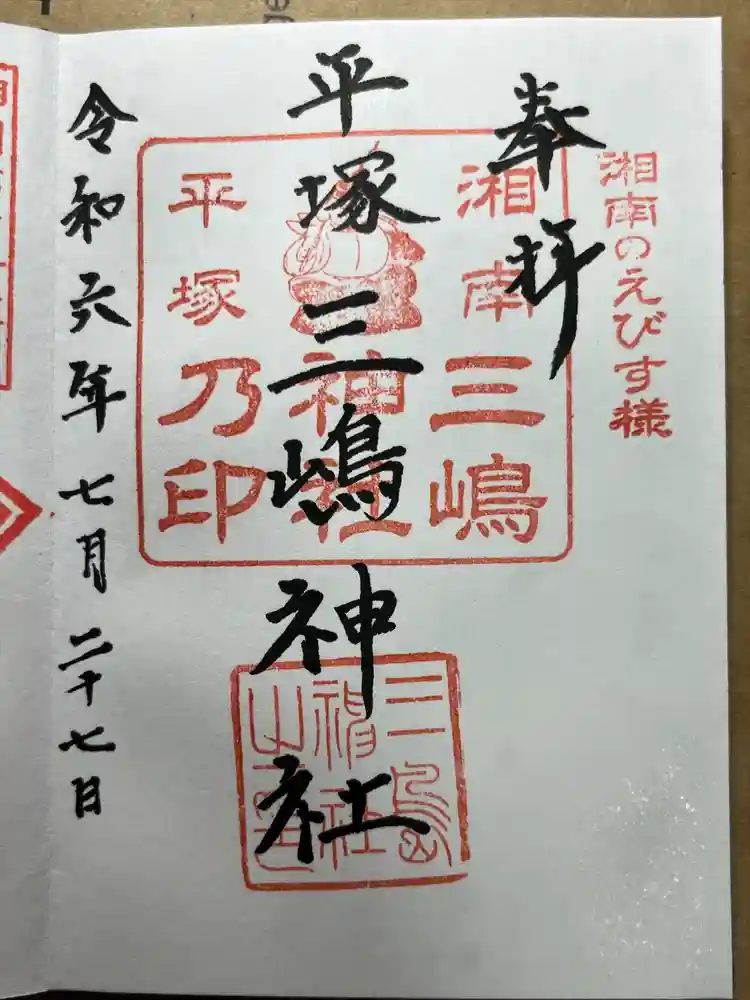 湘南のえびす様
奉拝
平塚三嶋神社
令和六年七月二十七日
湘南三嶋
神社
平塚乃印
三嶋
神社